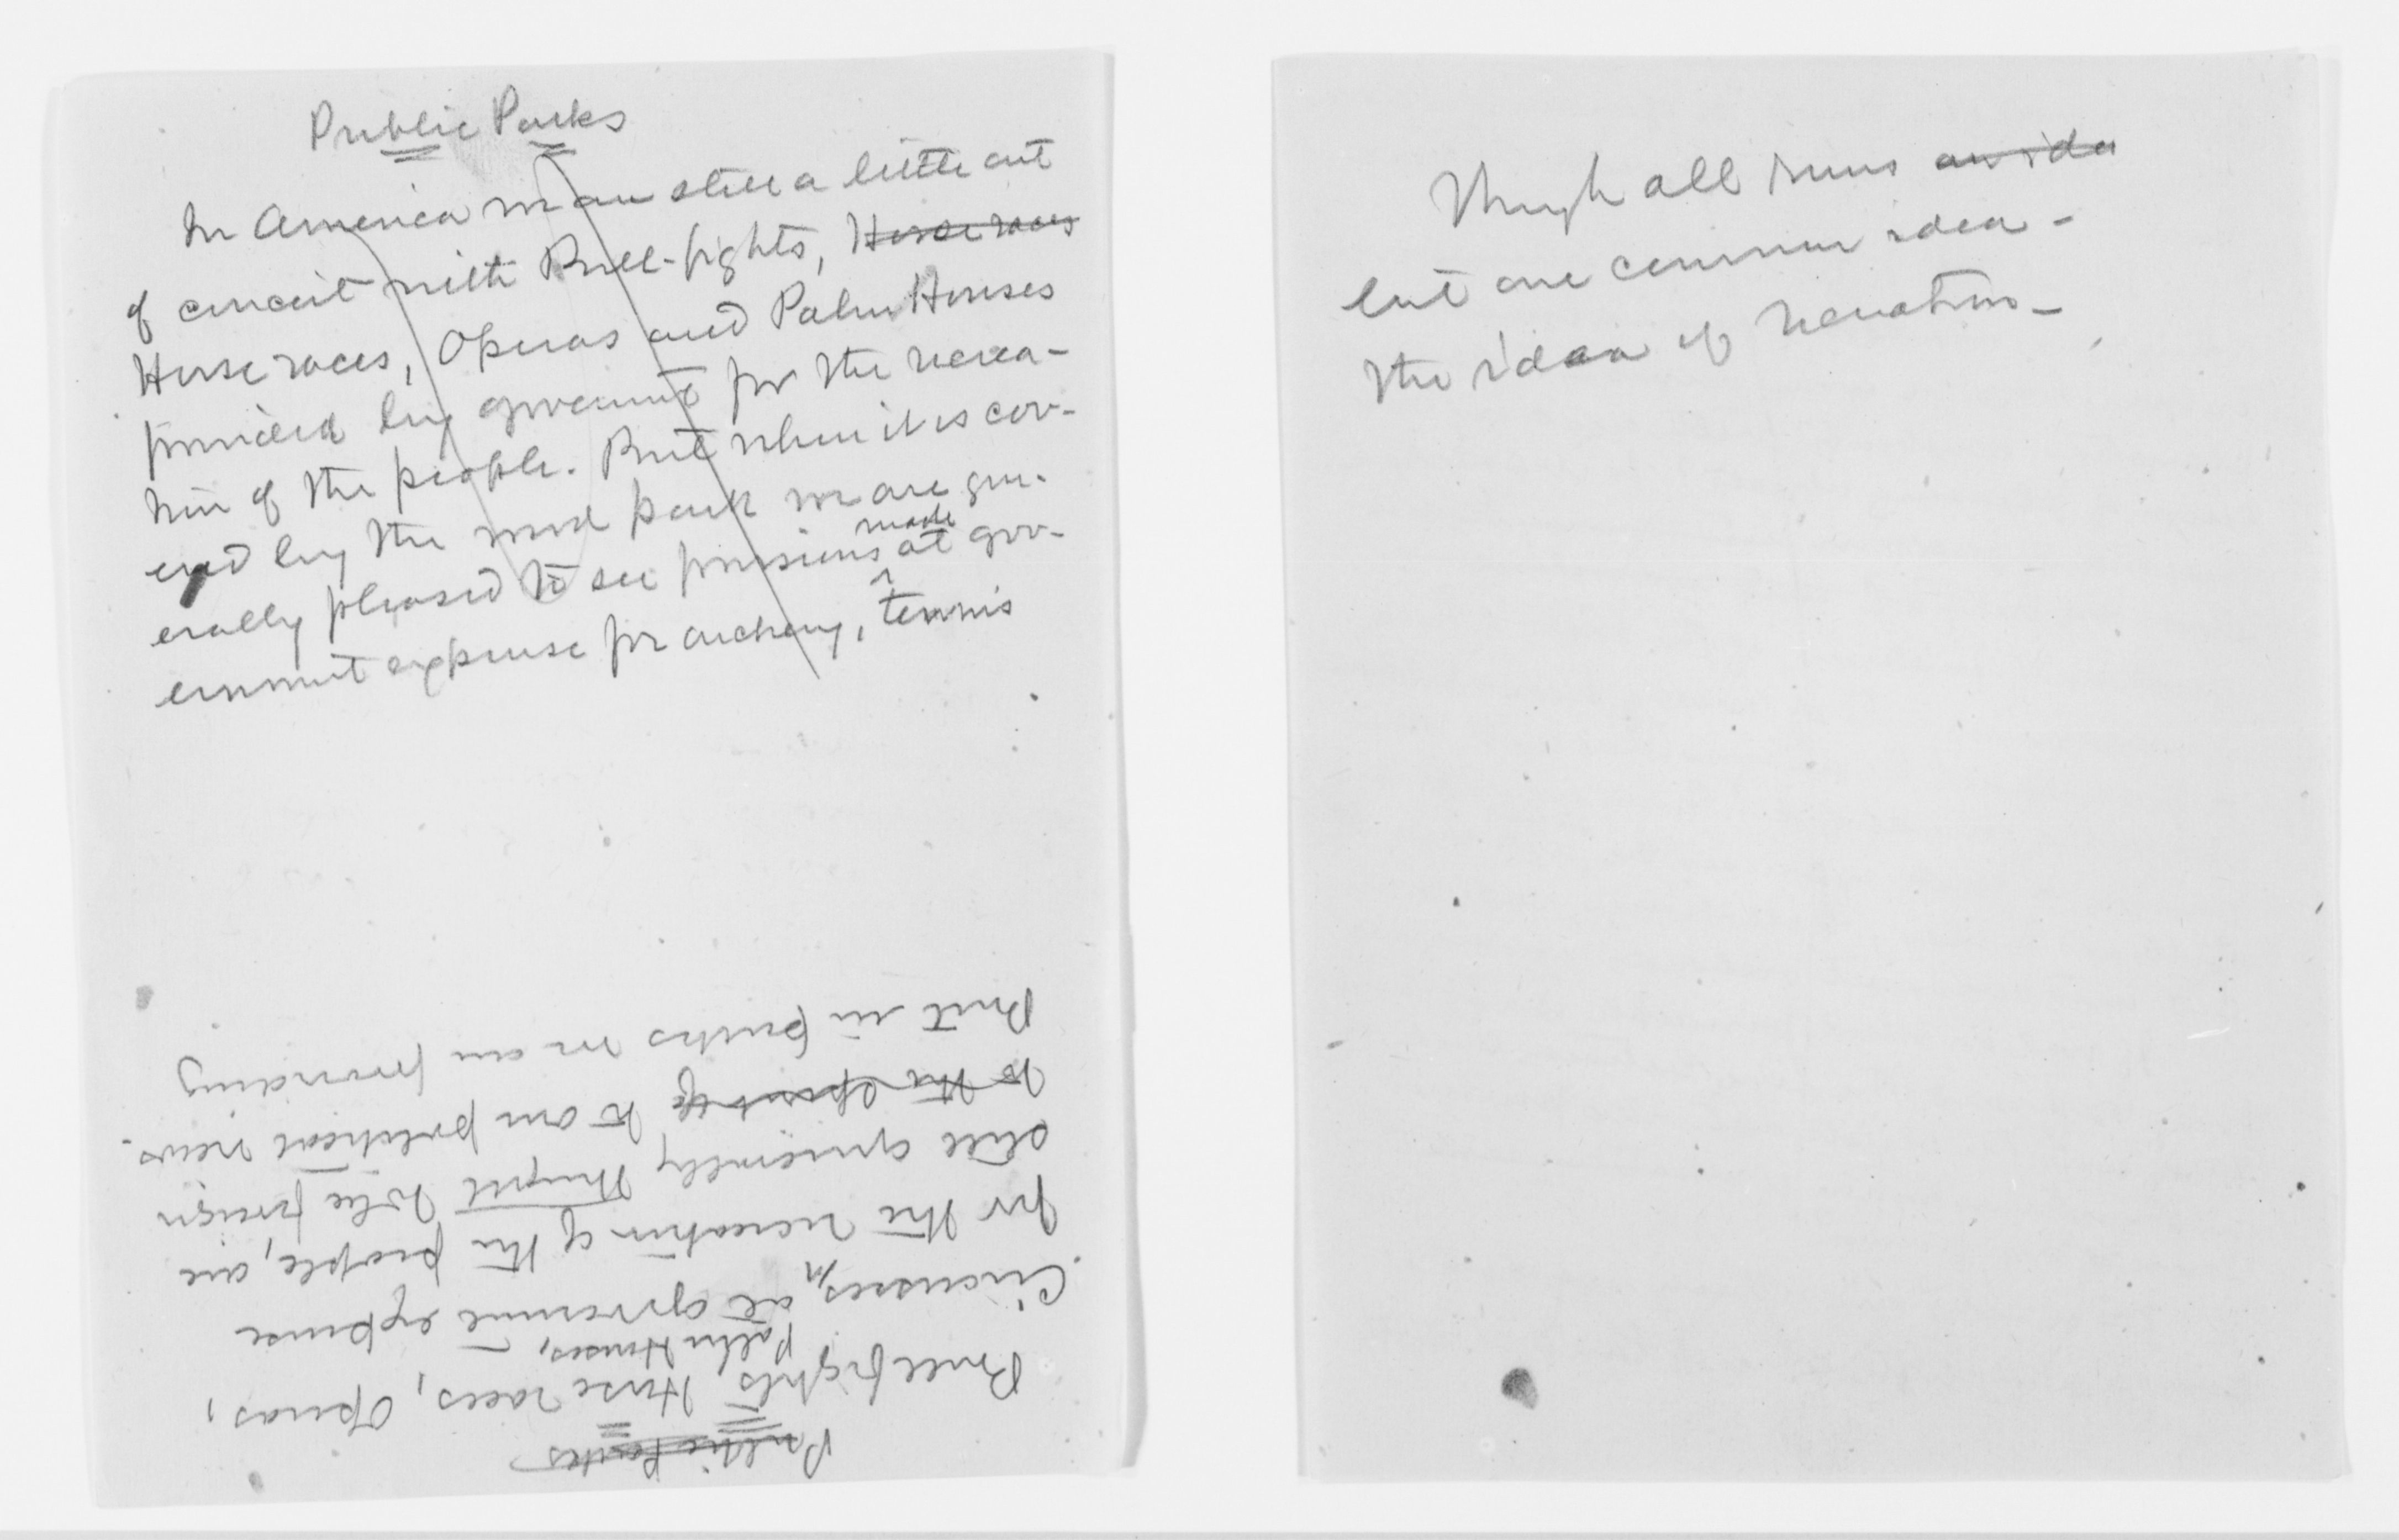 Public Parks
In America we are still a little out
of conceit with Bull-fights, Horse races
Horse races, Operas and Palm Houses
provided by government for the recrea-
tion of the people. But when it is cov-
ered by the word park we are gen-
erally pleased to see provisions made at gov-
ernment expense for archery, tennis
Public Parks
Bull fights, Horse races, Operas,
Palm Houses,
Circusses, at government expense
for the recreation of the people, are
still generally thought to be foreign
to the spirit of to our political views.
But in parks we are providing
Through all runs an idea
but one common idea -
the idea of recreation -